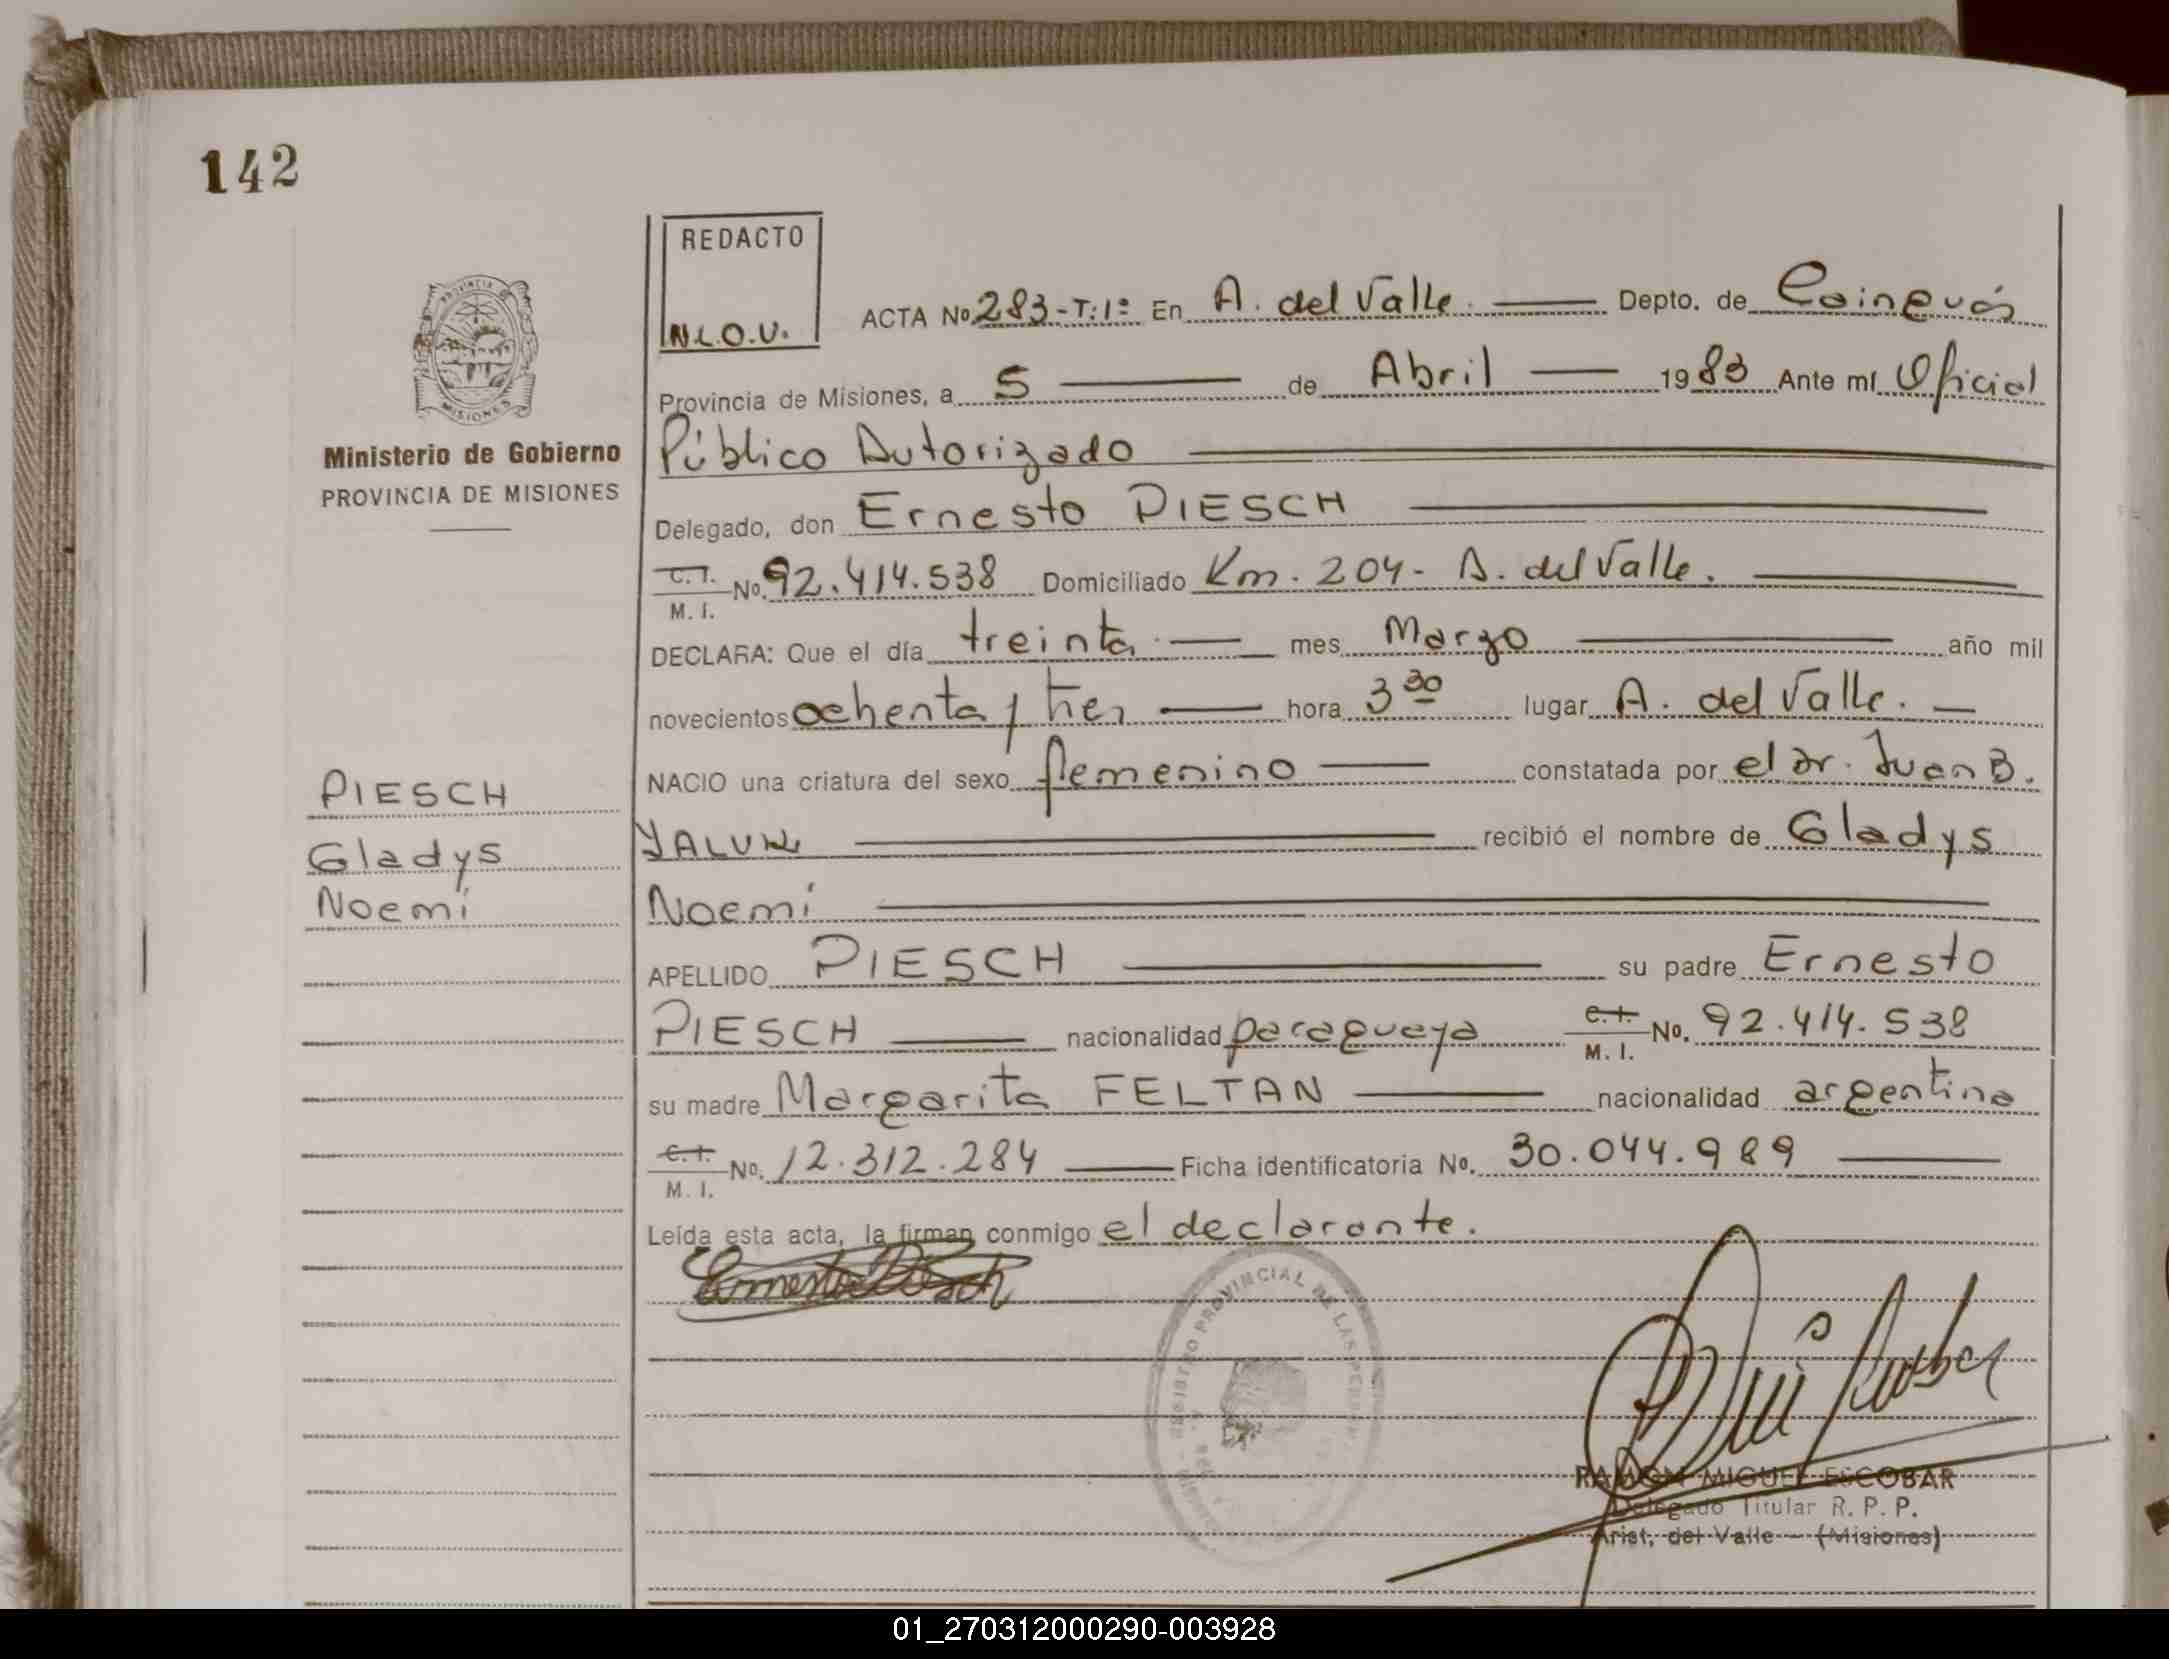 142
REDACTO
N.L.O.V.
PROVINCIA DE
MISIONES
Ministerio de Gobierno
PROVINCIA DE MISIONES
ACTA No. 283-T:1º En A. del Valle. Depto. de Cainguás
Provincia de Misiones, a 5 de Abril 1983 Ante mí Oficial
Público Autorizado
Delegado, don Ernesto PIESCH
C.I. M.I. No. 92.414.538 Domiciliado Km. 204- A. del Valle.
DECLARA: Que el día treinta mes Marzo año mil
novecientos ochenta y tres hora 3 30 lugar A. del Valle.
NACIO una criatura del sexo femenino constatada por el Dr. Juan B.
recibió el nombre de Gladys
Noemí
APELLIDO PIESCH su padre Ernesto
PIESCH nacionalidad paraguaya C.I. M.I. No. 92.414.538
su madre Margarita FELTAN nacionalidad argentina
C.I. M.I. No. 12.312.284 Ficha identificatoria No. 30.044.989
Leída esta acta, la firman conmigo el declarante.
PIESCH
Gladys
Noemí
Ernesto Piesch
REGISTRO PROVINCIAL DE LAS PERSONAS
RAMON MIGUEL ESCOBAR
Delegado Titular R. P. P.
Arist. del Valle - (Misiones)
01_270312000290-003928